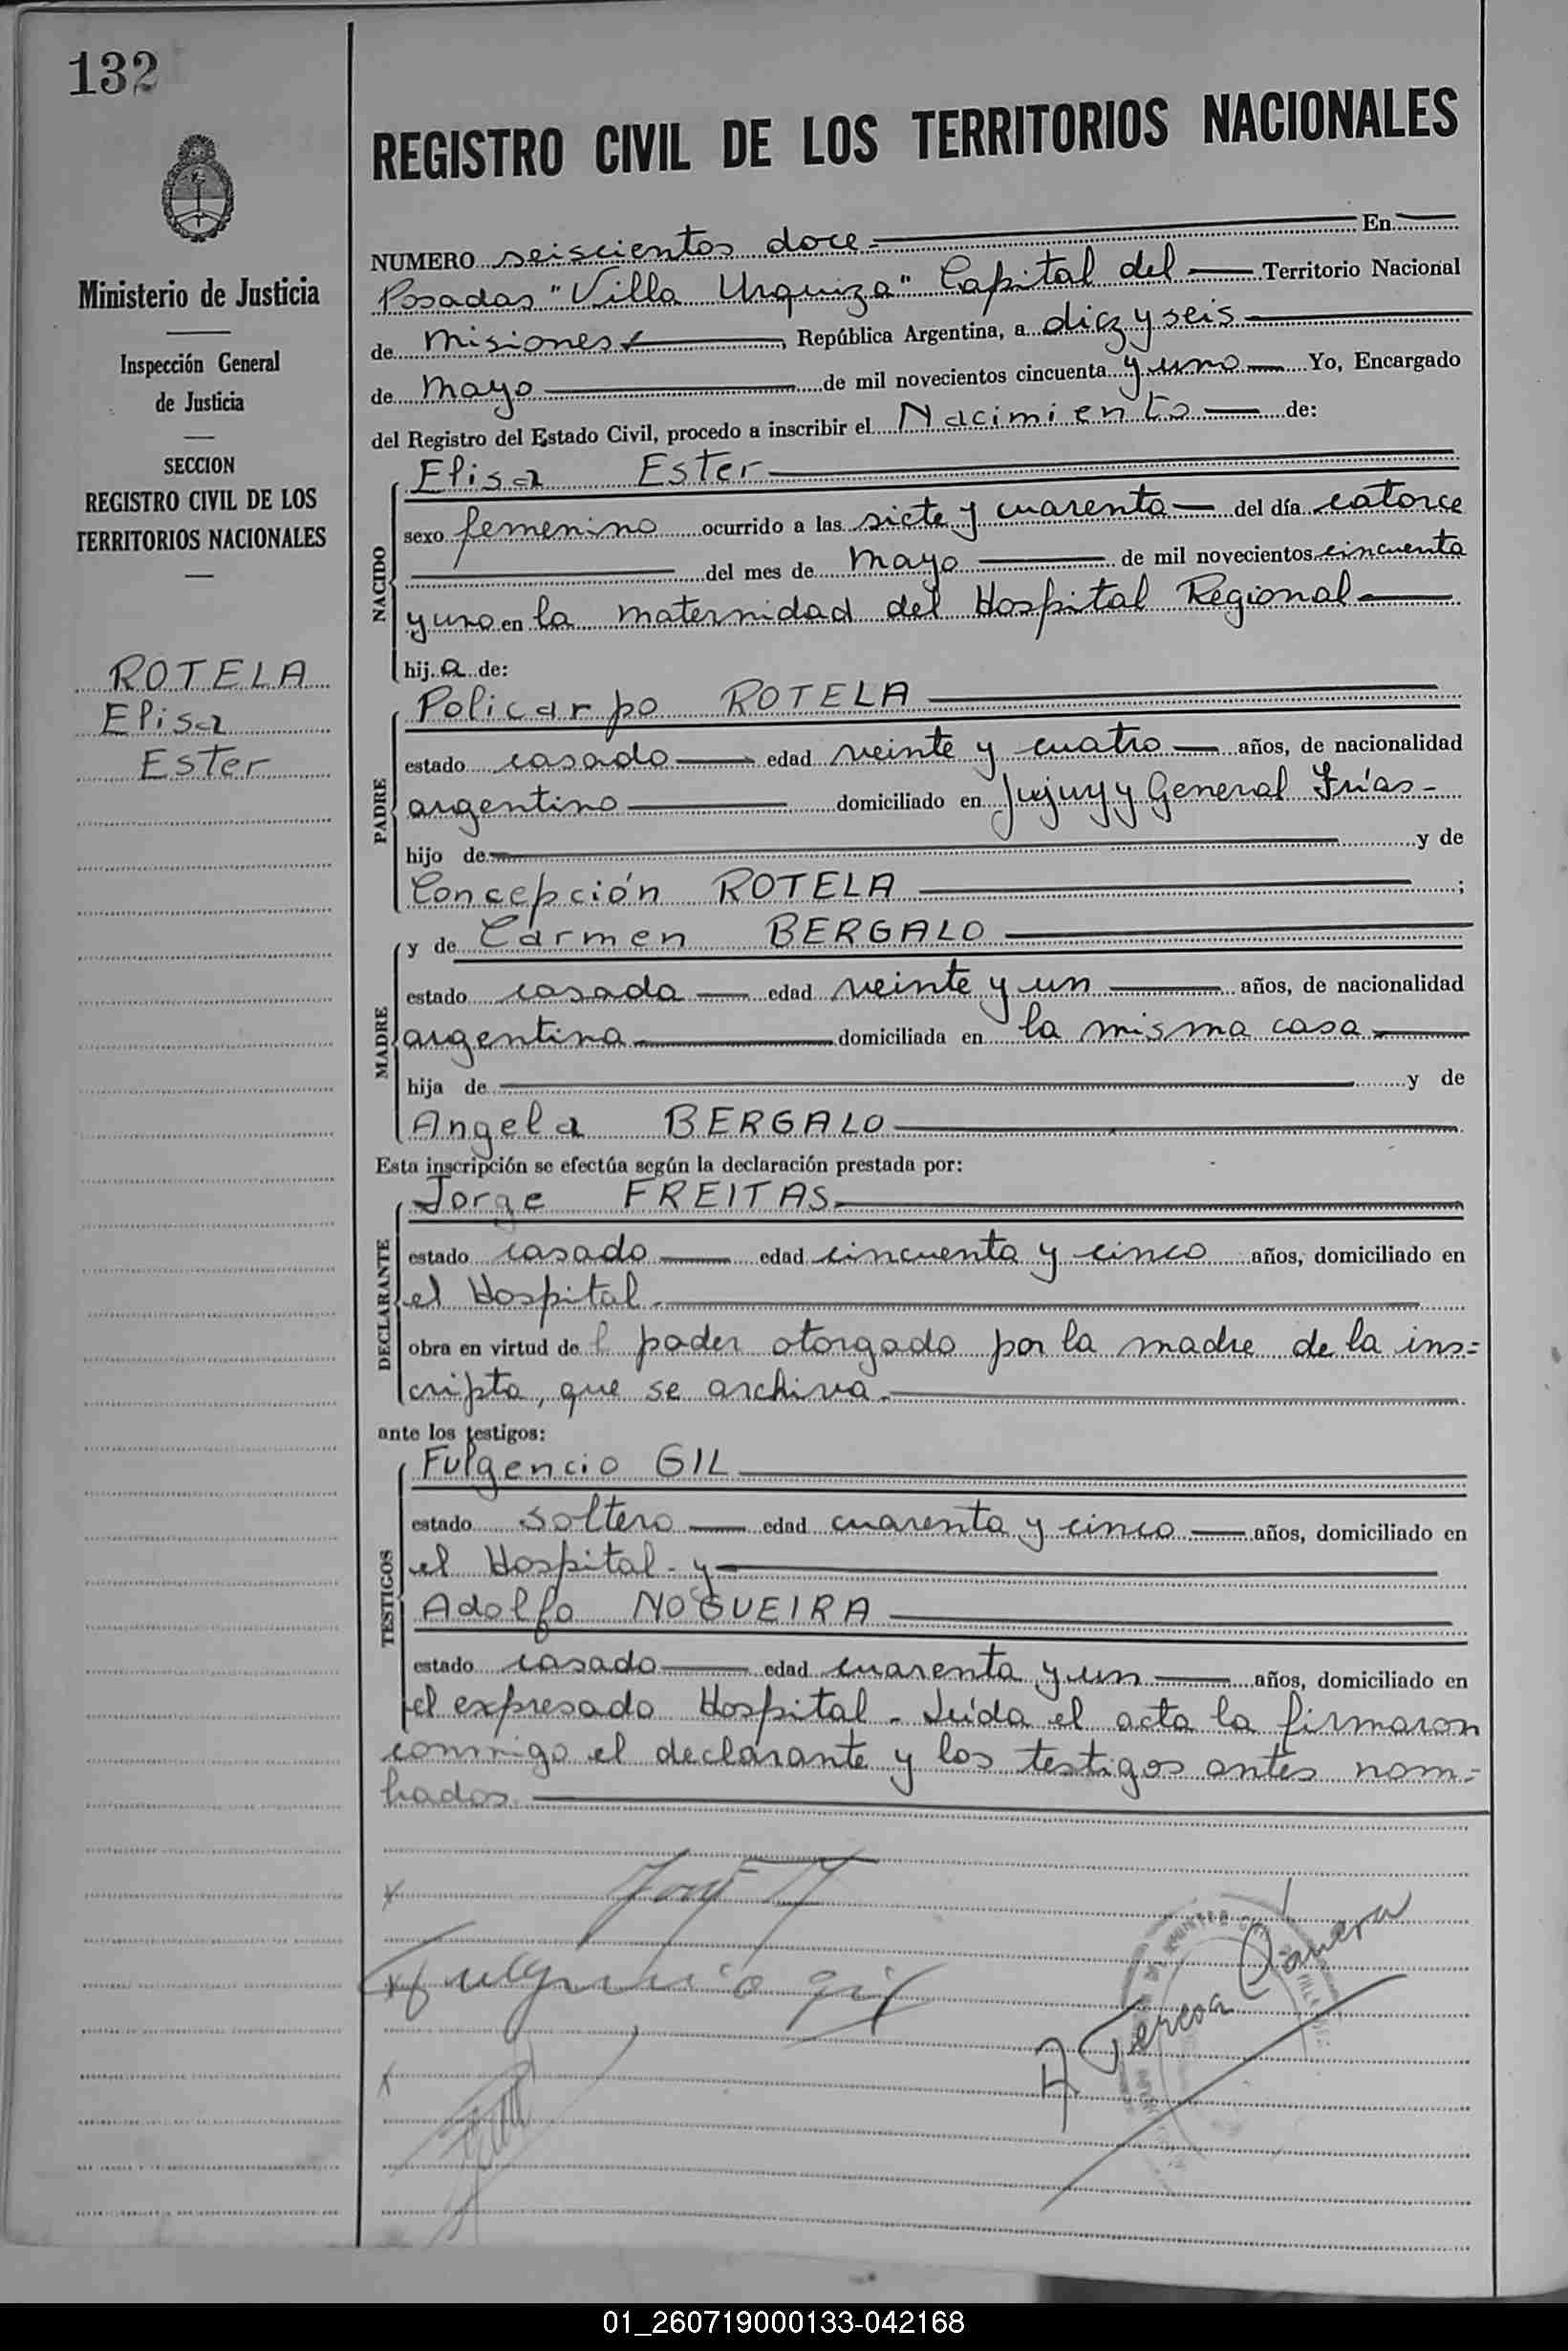 132
Ministerio de Justicia
Inspección General
de Justicia
SECCION
REGISTRO CIVIL DE LOS
TERRITORIOS NACIONALES
ROTELA
Elisa
Ester
REGISTRO CIVIL DE LOS TERRITORIOS NACIONALES
NUMERO seiscientos doce En
Posadas "Villa Urquiza" Capital del Territorio Nacional
de misiones, República Argentina, a diez y seis
de mayo de mil novecientos cincuenta y uno Yo, Encargado
del Registro del Estado Civil, procedo a inscribir el Nacimiento de:
NACIDO
Elisa Ester
sexo femenino ocurrido a las siete y cuarenta del día catorce
del mes de mayo de mil novecientos cincuenta
y uno en la maternidad del Hospital Regional
hij a de:
PADRE
Policarpo ROTELA
estado casado edad veinte y cuatro años, de nacionalidad
argentino domiciliado en Jujuy y General Frías-
hijo de y de
Concepción ROTELA ;
MADRE
y de Carmen BERGALO
estado casada edad veinte y un años, de nacionalidad
argentina domiciliada en la misma casa
hija de y de
Angela BERGALO
Esta inscripción se efectúa según la declaración prestada por:
DECLARANTE
Jorge FREITAS
estado casado edad cincuenta y cinco años, domiciliado en
el Hospital.
obra en virtud de l poder otorgado por la madre de la ins=
cripta, que se archiva.
ante los testigos:
TESTIGOS
Fulgencio GIL
estado soltero edad cuarenta y cinco años, domiciliado en
el Hospital - y
Adolfo NOGUEIRA
estado casado edad cuarenta y un años, domiciliado en
el expresado Hospital - Leída el acta la firmaron
conmigo el declarante y los testigos antes nom=
brados.
Fulgencio gil
01_260719000133-042168